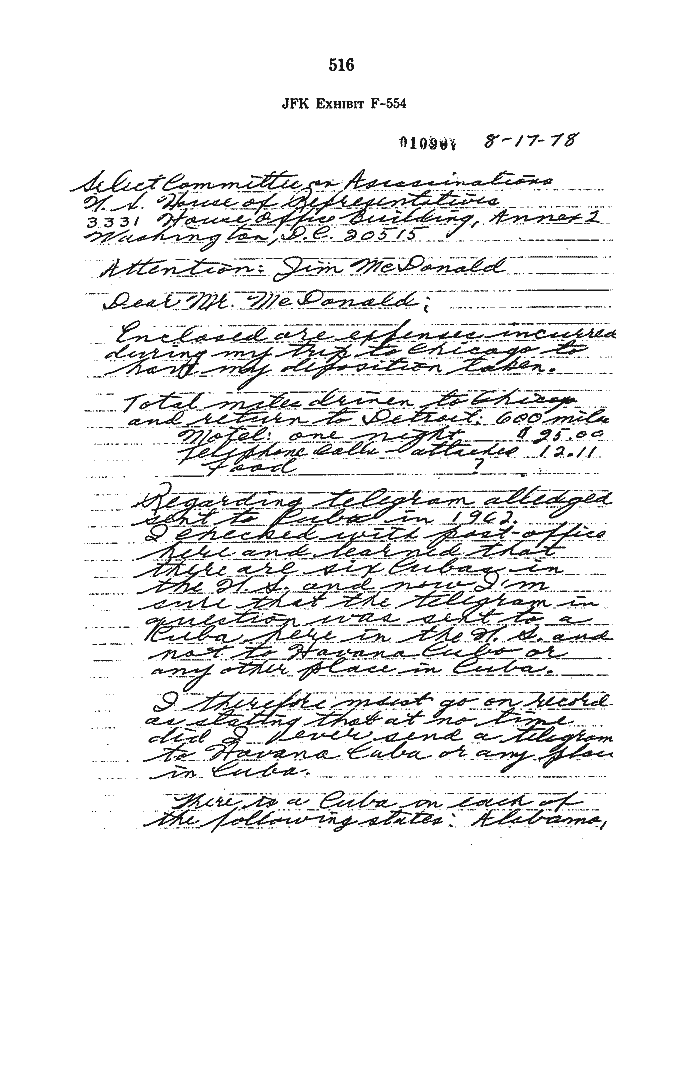 516
JFK EXHIBIT F-554
8-17-78
Select Committee on Assassinations
U. S. House of Representatives
3331 House Office Building, Annex 2
Washington, D.C. 20515
Attention: Jim McDonald
Dear Mr. McDonald;
Enclosed are expenses incurred
during my trip to Chicago to
have my deposition taken.
Total miles driven to Chicago
and return to Detroit: 600 miles
Motel: one night $25.00
Telephone Calls attached 12.11
Food ?
Regarding telegram alledged
sent to Cuba in 1962.
I checked with post-office
here and learned that
there are six Cubas in
the U.S. and now I'm
sure that the telegram in
question was sent to a
Cuba here in the U.S. and
not to Havana Cuba or
any other place in Cuba.
I therefore must go on record
as stating that at no time
did I ever send a telegram
to Havana Cuba or any place
in Cuba.
There is a Cuba on each of
the following states: Alabama,